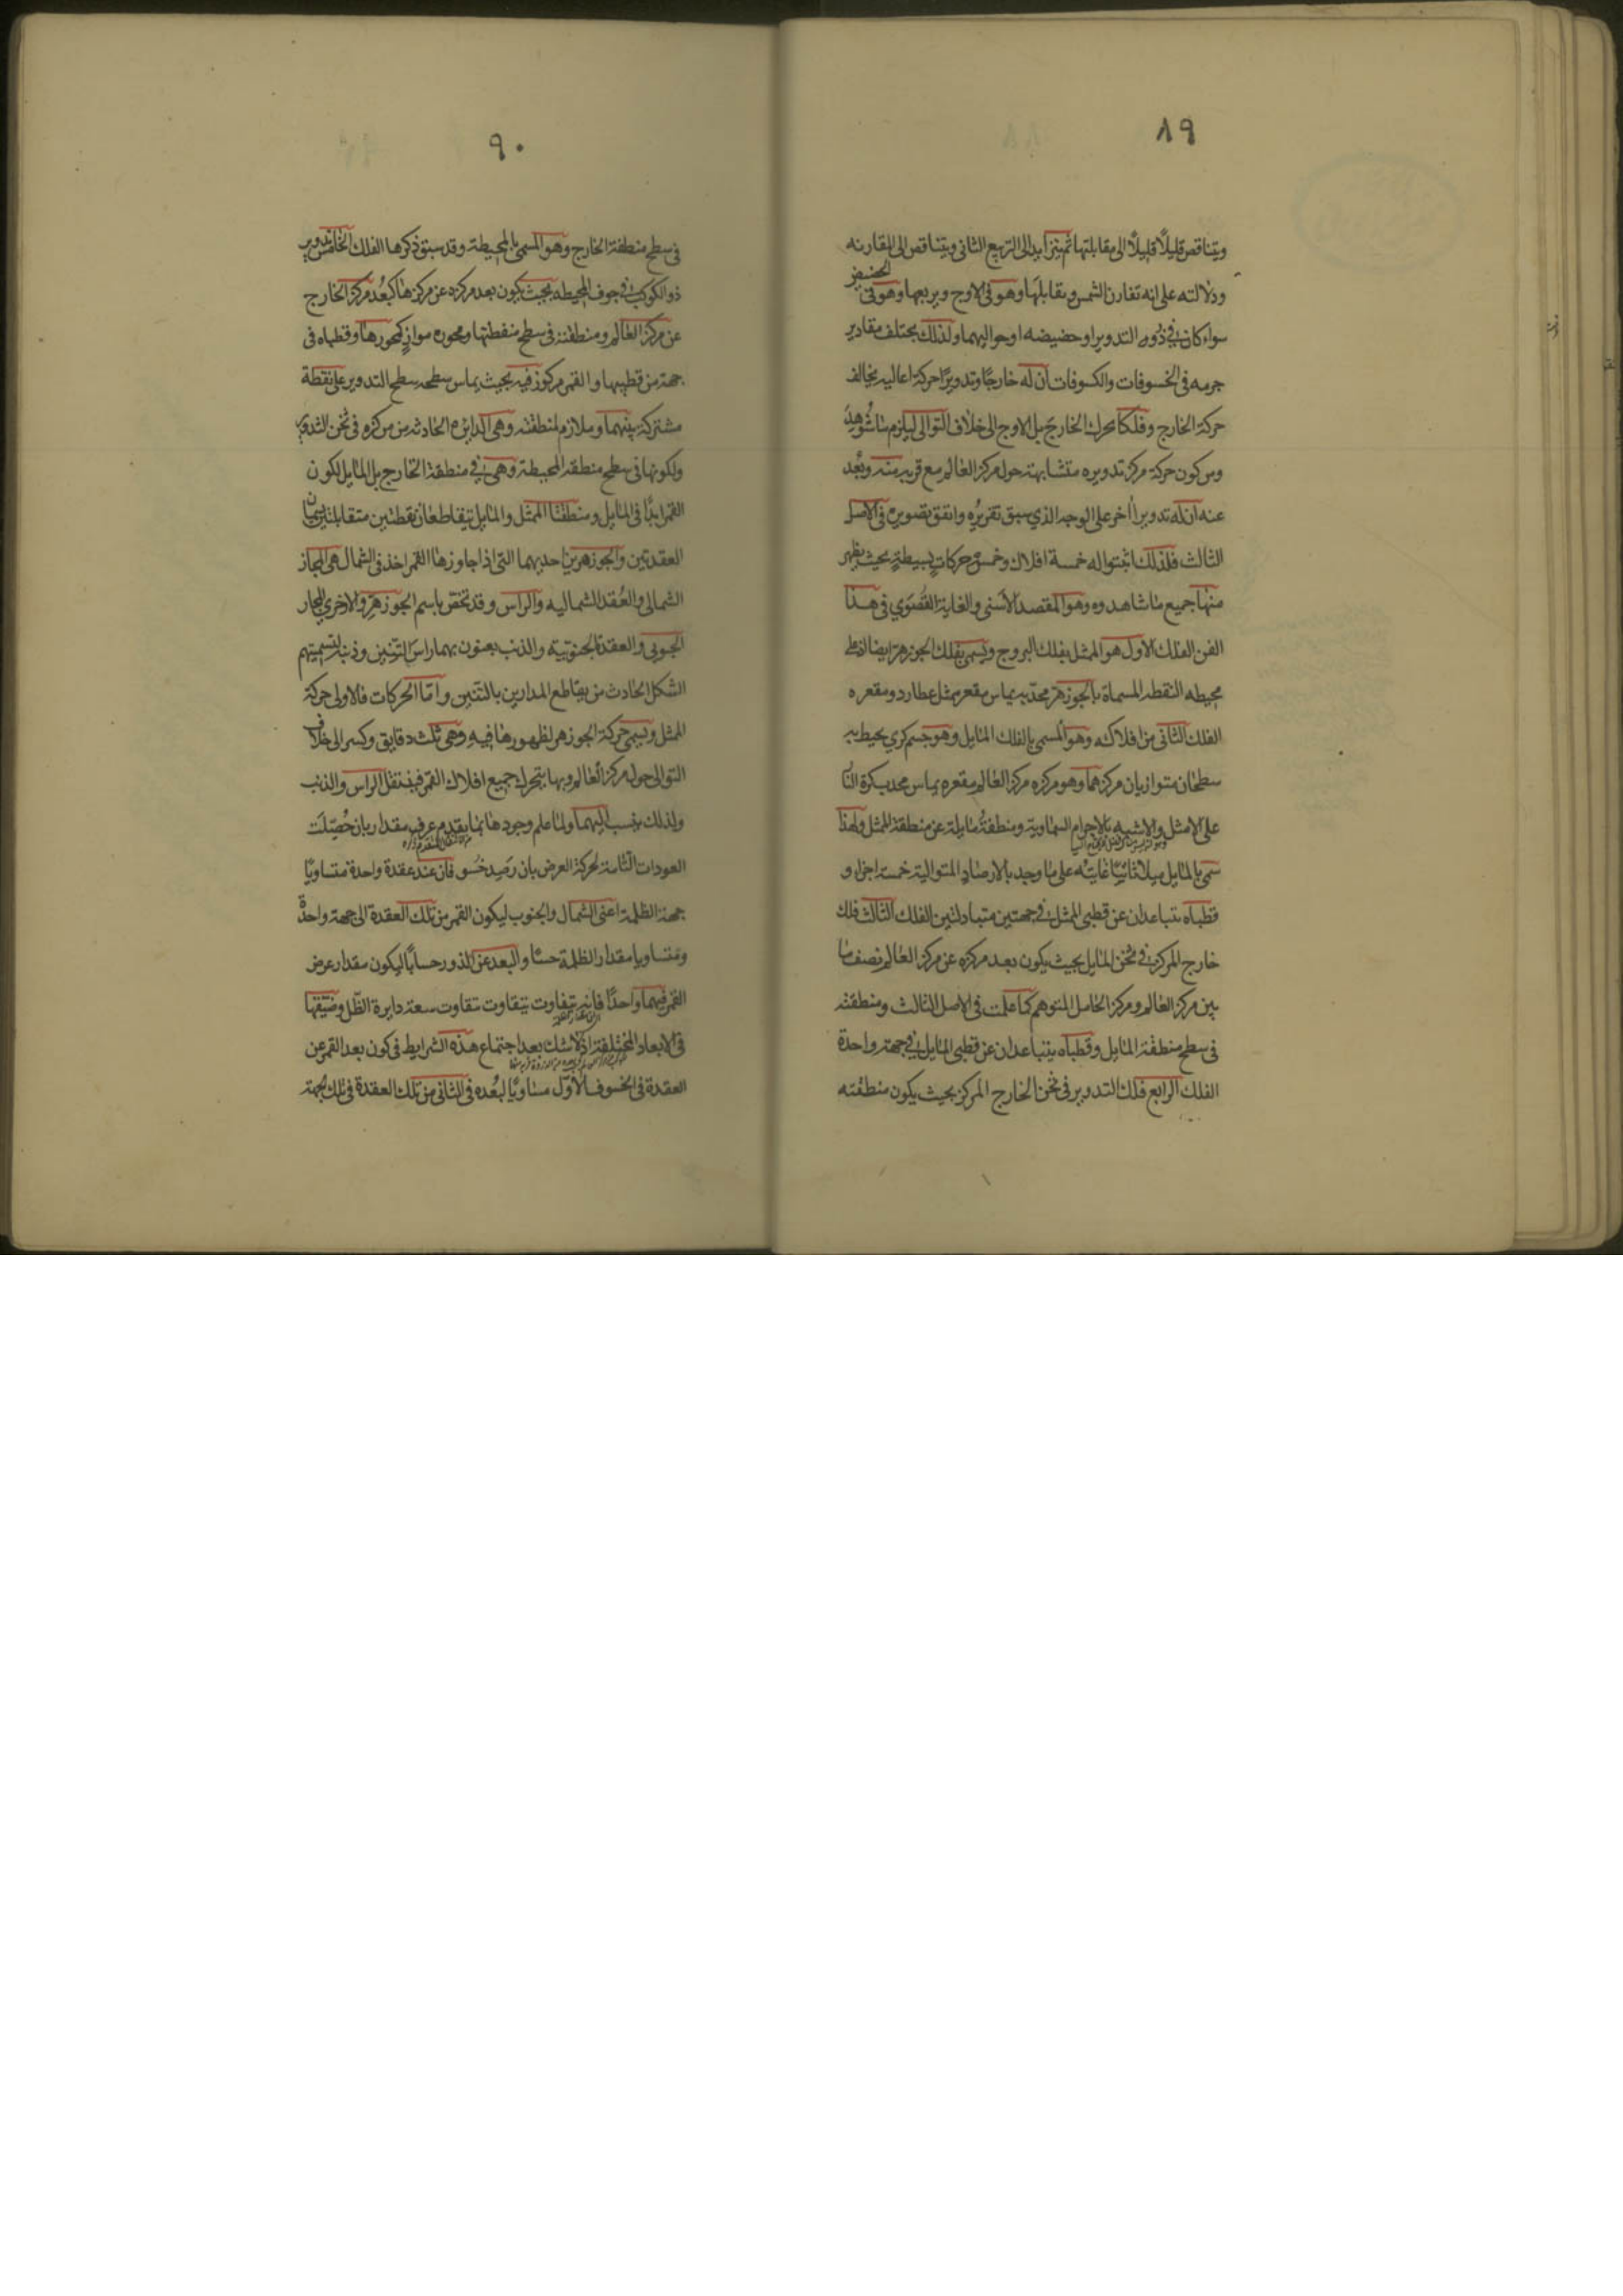 ٨٩
ويتناقص قليلاً قليلاً الى مقابلتها ثم يتزايد الى التربيع الثانى ويتناقص الى المقارنه
ودلالته على انه تقارن الشمس ويقابلها وهو فى الاوج ويربعها وهو فى الحضيض
سواء كان فى ذروه التدوير او حضيضه او حواليهما ولذلك يختلف مقادير
جرمه فى الخسوفات والكسوفات ان له خارجًا وتدويرًا حركة اعاليه يخالف
حركة الخارج وفلكا يحرك الخارج بل الاوج الى خلاف التوالى ليلزم ما شُوهِدَ
ومن كون حركة مركز تدويره متشابهة حول مركز العالم مع قربه منه وبُعد
عنه ان له تدويرا اخر على الوجه الذي سبق تقريره واتفق تصويره فى الاصل
الثالث فلذلك اثبتوا له خمسة افلاك وخمس حركات بسيطةٍ بحيث يظهر
منها جميع ما شاهدوه وهو المقصد الاسنى والغاية القصوي فى هذا
الفن الفلك الاول هو الممثل بفلك البروج ويسمى بفلك الجوزهر ايضا اذ على
محيطه النقطه المسماة بالجوزهر محدّبه يماس مقعر ممثل عطارد ومقعره
الفلك الثانى من افلاكه وهو المسمى بالفلك المايل وهو جسم كري يحيط به
سطحان متوازيان مركزهما وهو مركزه مركز العالم ومقعره يماس محدب كرة النار
على الامثل والاشبه بالاجرام السماوية ومنطقتُه مايلة عن منطقة الممثل ولهذا
سمى بالمايل ميلا ثابتًا غايتُه على ما وجد بالارصاد المتوالية خمسة اجزاء و
قطباه يتباعدان عن قطبى الممثل فى جهتين متبادلتين الفلك الثالث فلك
خارج المركز فى ثخن المايل بحيث يكون بعد مركزه عن مركز العالم نصف ما
بين مركز العالم ومركز الحامل المتوهم كما علمت فى الاصل الثالث ومنطقته
فى سطح منطقة المايل وقطباه يتباعدان عن قطبى المايل فى جهة واحدة
الفلك الرابع فلك التدوير فى ثخن الخارج المركز بحيث يكون منطقته
٩٠
فى سطح منطقة الخارج وهو المسمى بالمحيطة وقد سبق ذكرها الفلك الخامس تدوير
ذو الكوكب فى جوف المحيطه بحيث يكون بعد مركزه عن مركزها كبُعد مركز الخارج
عن مركز العالم ومنطقته فى سطح منطقتها ومحوره موازٍ لمحورها وقطباه فى
جهة من قطبيها والقمر مركوز فيه بحيث يماس سطحه سطح التدوير على نقطة
مشتركة بينهما وملازم لمنطقته وهى الدايره الحادثه من مركزه فى ثخن التدوير
ولكونها فى سطح منطقه المحيطة وهى فى منطقة الخارج بل المايل لكون
القمر ابدًا فى المايل ومنطقتا الممثل والمايل يتقاطعان نقطتين متقابلتين يسميان
العقدتين والجوزهرين احديهما التى اذا جاوزها القمر اخذ فى الشمال هى المجاز
الشمالى والعُقدة الشماليه والراس وقد تخص باسم الجوزهر والاخري المجاز
الجنوبى والعقدة الجنوبية والذنب يعنون بهما راس التنين وذنبه لتسميتهم
الشكل الحادث من تقاطع المدارين بالتنين وامّا الحركات فالاولى حركة
الممثل ويسمى حركة الجوزهر لظهورها فيه وهى ثلث دقايق وكسر الى خلاف
التوالى حول مركز العالم وبها يتحرك جميع افلاك القمر فينتقل الراس والذنب
ولذلك ينسب اليهما ولما علم وجودها بما يقدم عرف مقدارها بان حُصّلت
العودات التامة لحركة العرض بان رَصِيد خُسوفان عند عقدة واحدة متساويًا
جهة الظلمة اعنى الشمال والجنوب ليكون القمر من تلك العقدة الى جهة واحدة
ومتساويا مقدار الظلمة حسًا والبعد عن الذور حسابًا ليكون مقدار عرض
القمر فيهما واحدًا فانه يتفاوت بتفاوت سعة دايرة الظل وضيقها
فى الابعاد المختلفة اذ لا شك بعد اجتماع هذه الشرايط فى كون بعد القمر عن
العقدة فى الخسوف الاول مساويًا لبُعده فى الثانى من تلك العقدة فى تلك الجهة